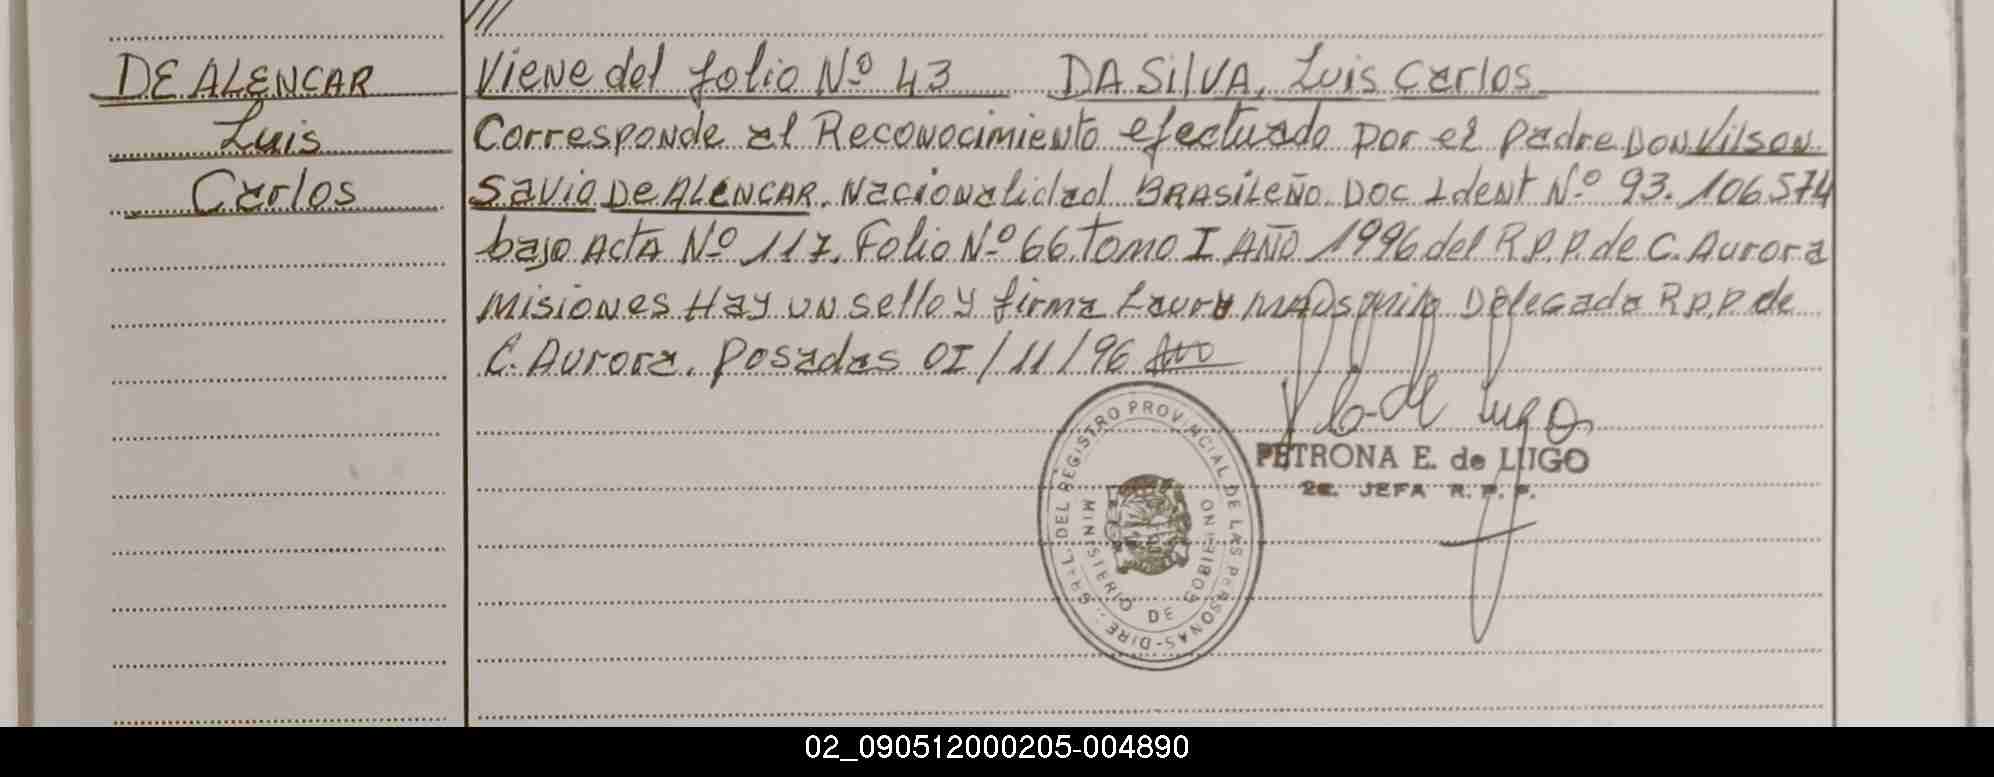 ///
DE ALENCAR
Luis
Carlos
Viene del folio Nº 43 DA SilVA, Luis Carlos
Corresponde al Reconocimiento efectuado por el padre DON Vilson
Savio De ALENCAR. Nacionalidad BRASileÑo. DOC Ident Nº 93.106.574
bajo ActA Nº 117. Folio Nº 66. Tomo I AÑO 1996 del R.P.P. de C. Aurora
Misiones Hay un sello y firma Laura Delegada R.P.P. de
C. Aurora. Posadas 01/11/96
PETRONA E. de LUGO
2a. JEFA R. P. P.
GRAL. DEL REGISTRO PROVINCIAL DE LAS PERSONAS-DIRE
MINISTERIO DE GOBIERNO
02_090512000205-004890